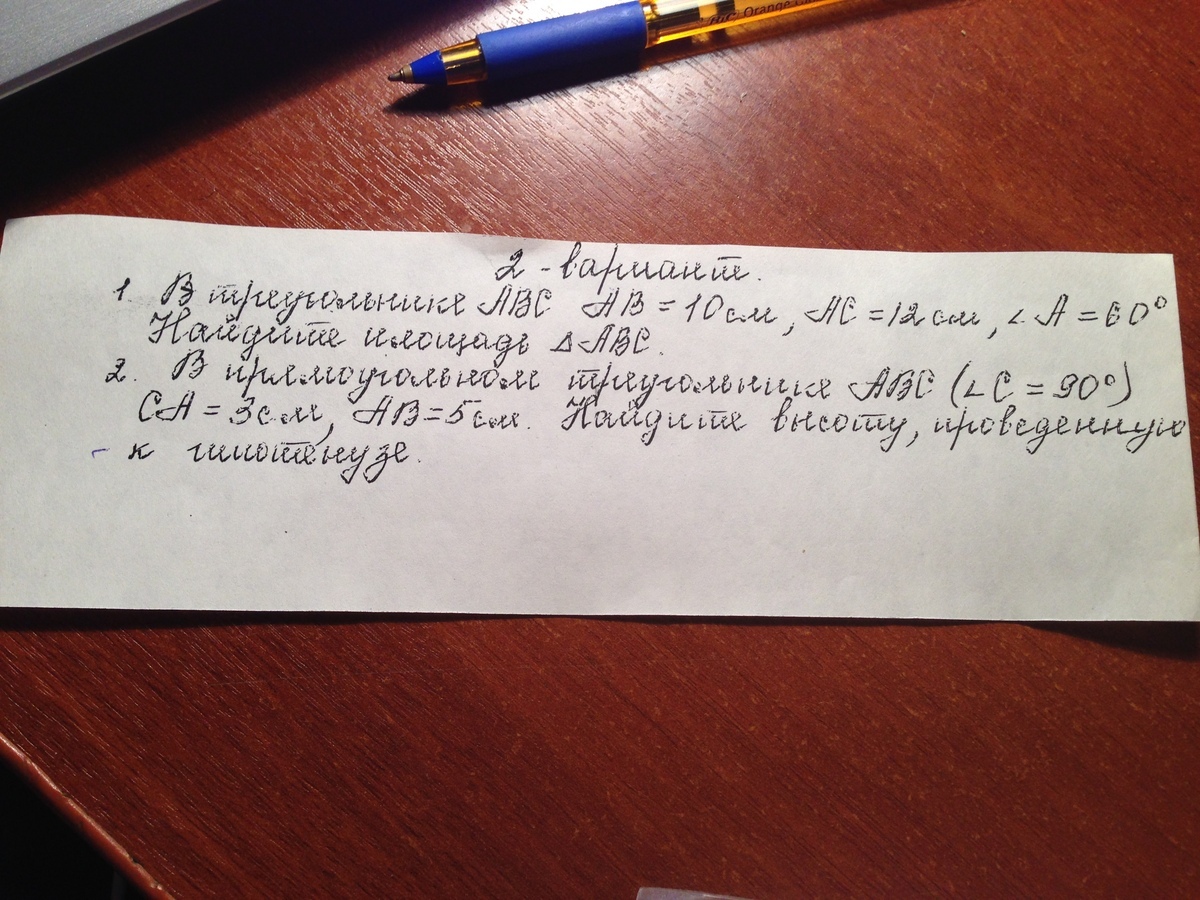 BIC Orange
2 - вариант.
1. В треугольнике ABC AB = 10 см, AC = 12 см, ∠A = 60°
Найдите площадь ΔABC.
2. В прямоугольном треугольнике ABC (∠C = 90°)
CA = 3 см, AB = 5 см. Найдите высоту, проведенную
к гипотенузе.